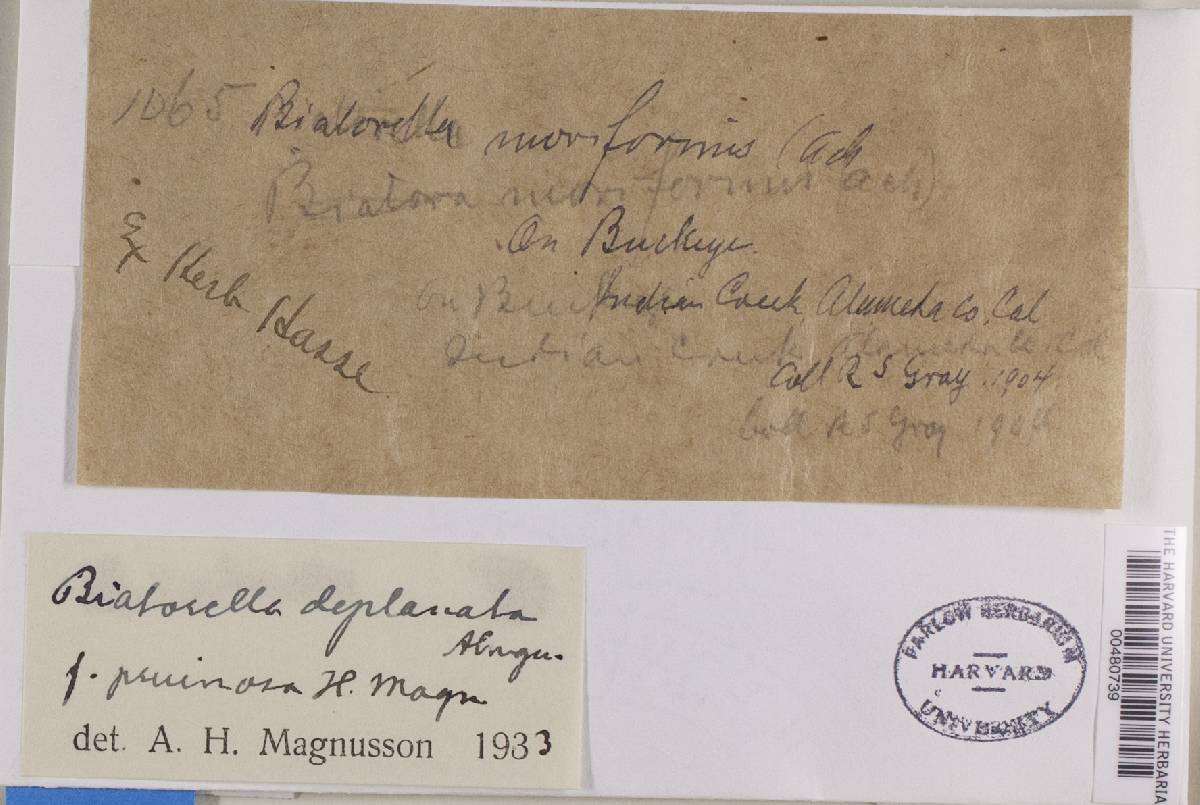 1065 Biatorella moriformis (Ach
Biatora moriformis Ach)
On Buckeye.
Ex Herb Hasse
On Buck
Indian Creek Alameda Co. Cal
Indian Creek Alameda Co Cal
Coll R S Gray. 1904
Coll R S Gray 1904
Biatorella deplanata
Almqu.
f. pruinosa H. Magn
det. A. H. Magnusson 1933
FARLOW HERBARIUM
HARVARD
UNIVERSITY
THE HARVARD UNIVERSITY HERBARIA
00480739